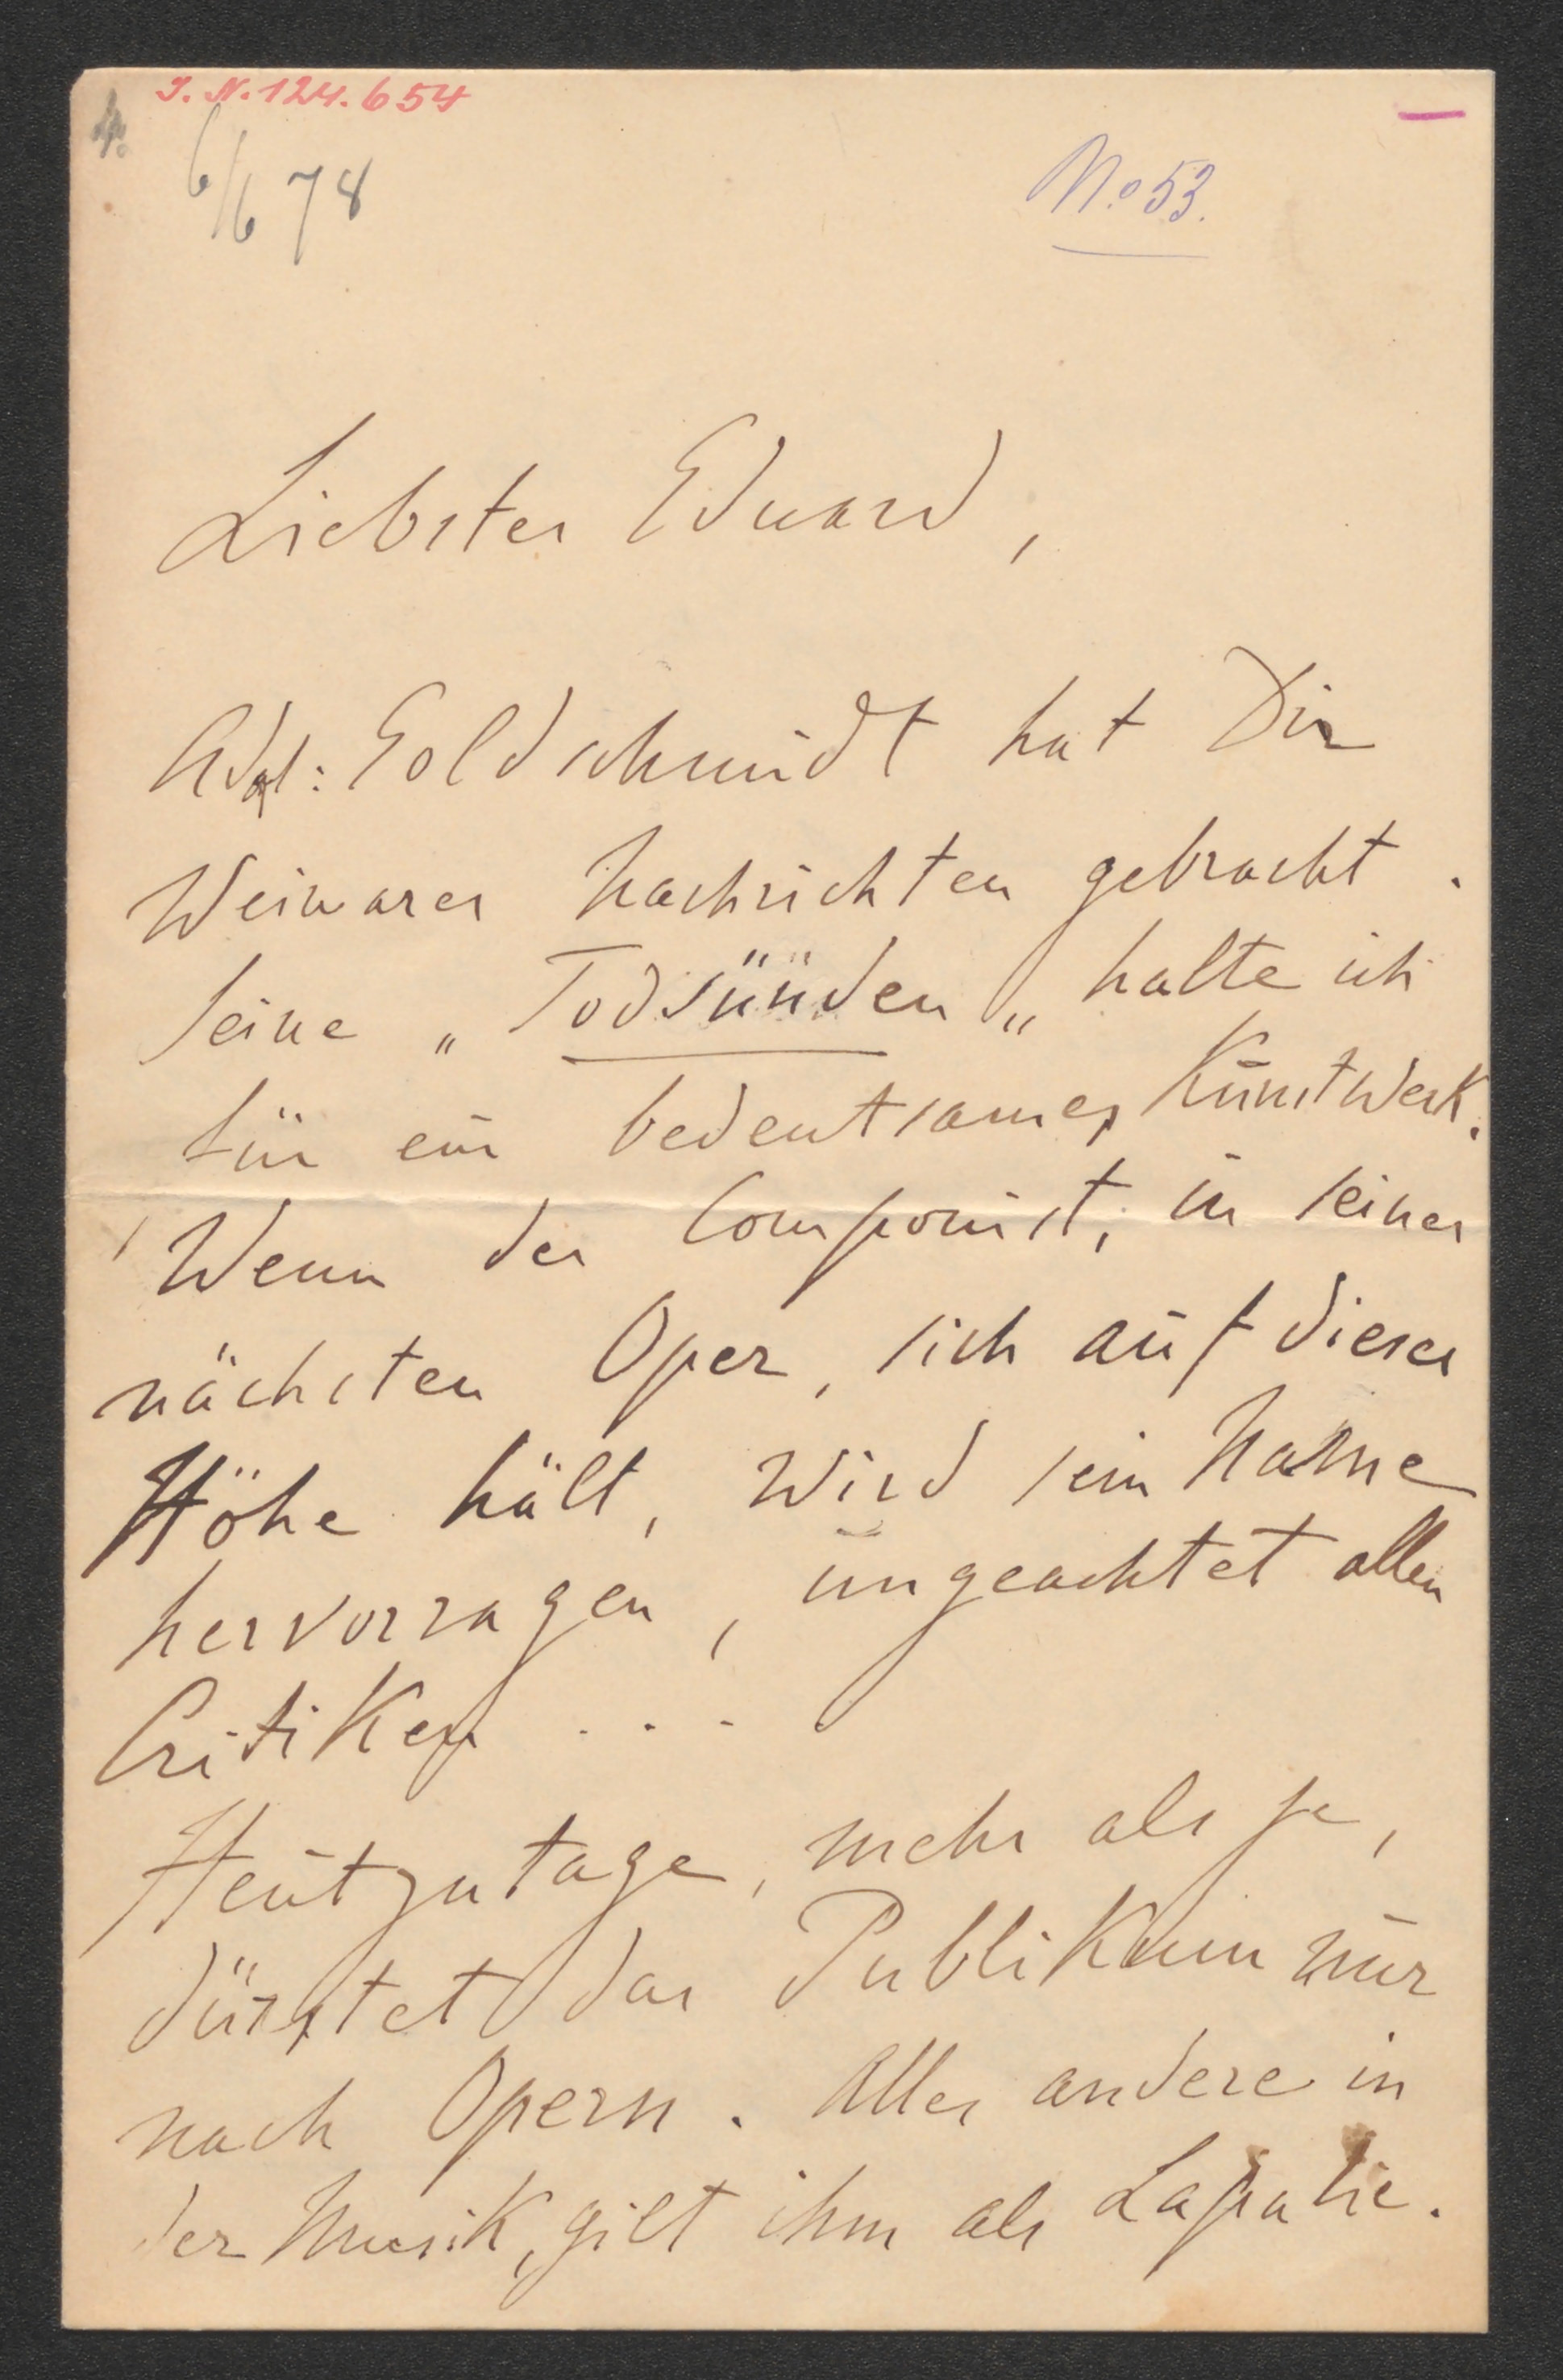 I.N. 124.654
6/6 78
No 53.
Liebster Eduard,
Adal: Goldschmidt hat Dir
Weimarer Nachrichten gebracht.
Seine „Todsünden„ halte ich
für ein bedeutsames Kunstwerk.
Wenn der Componist, in seiner
nächsten Oper, sich auf dieser
Höhe hält, wird sein Name
hervorragen, ungeachtet allen
Critiken . . .
Heutzutage, mehr als je,
dürstet das Publikum nur
nach Opern. Alles andere in
der Musik, gilt ihm als Lapalie.